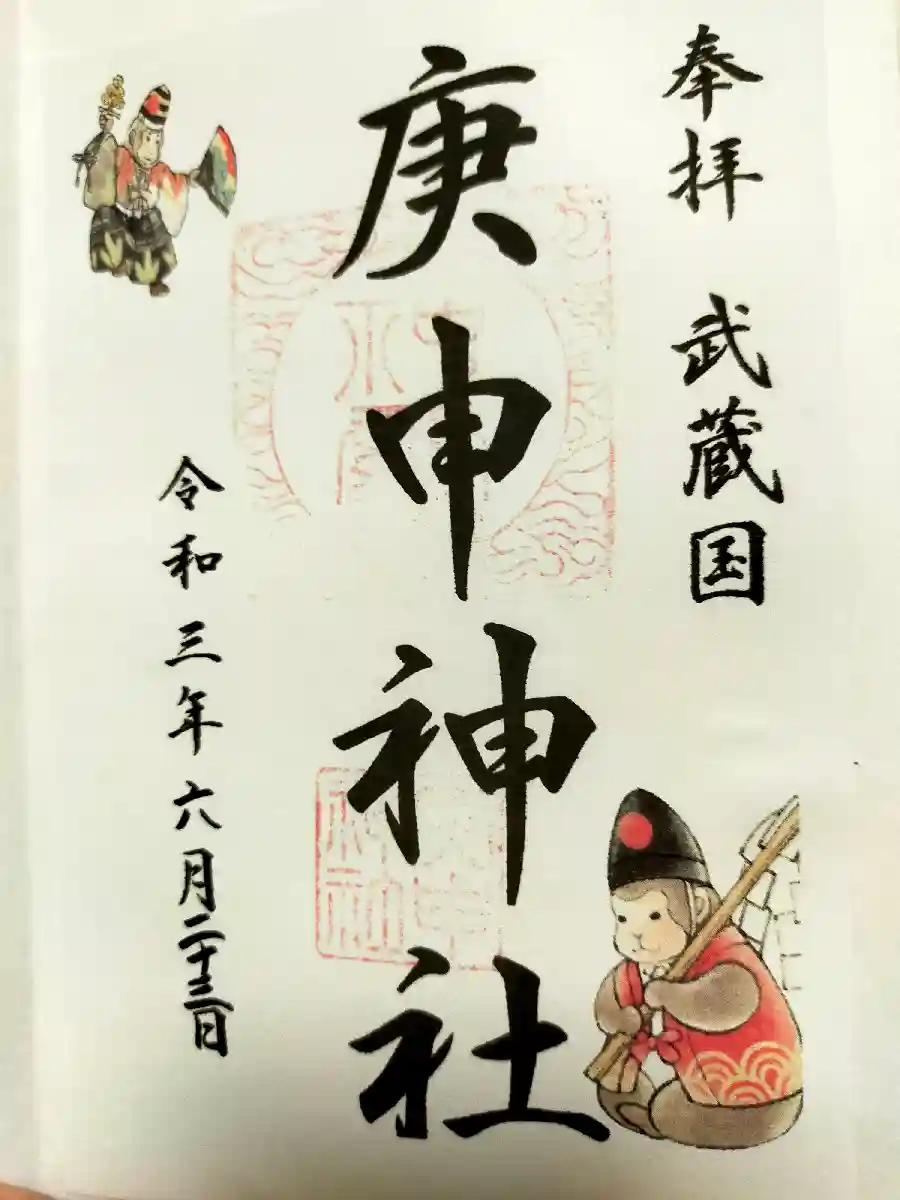 奉拝 武蔵国
庚申神社
令和三年六月二十三日